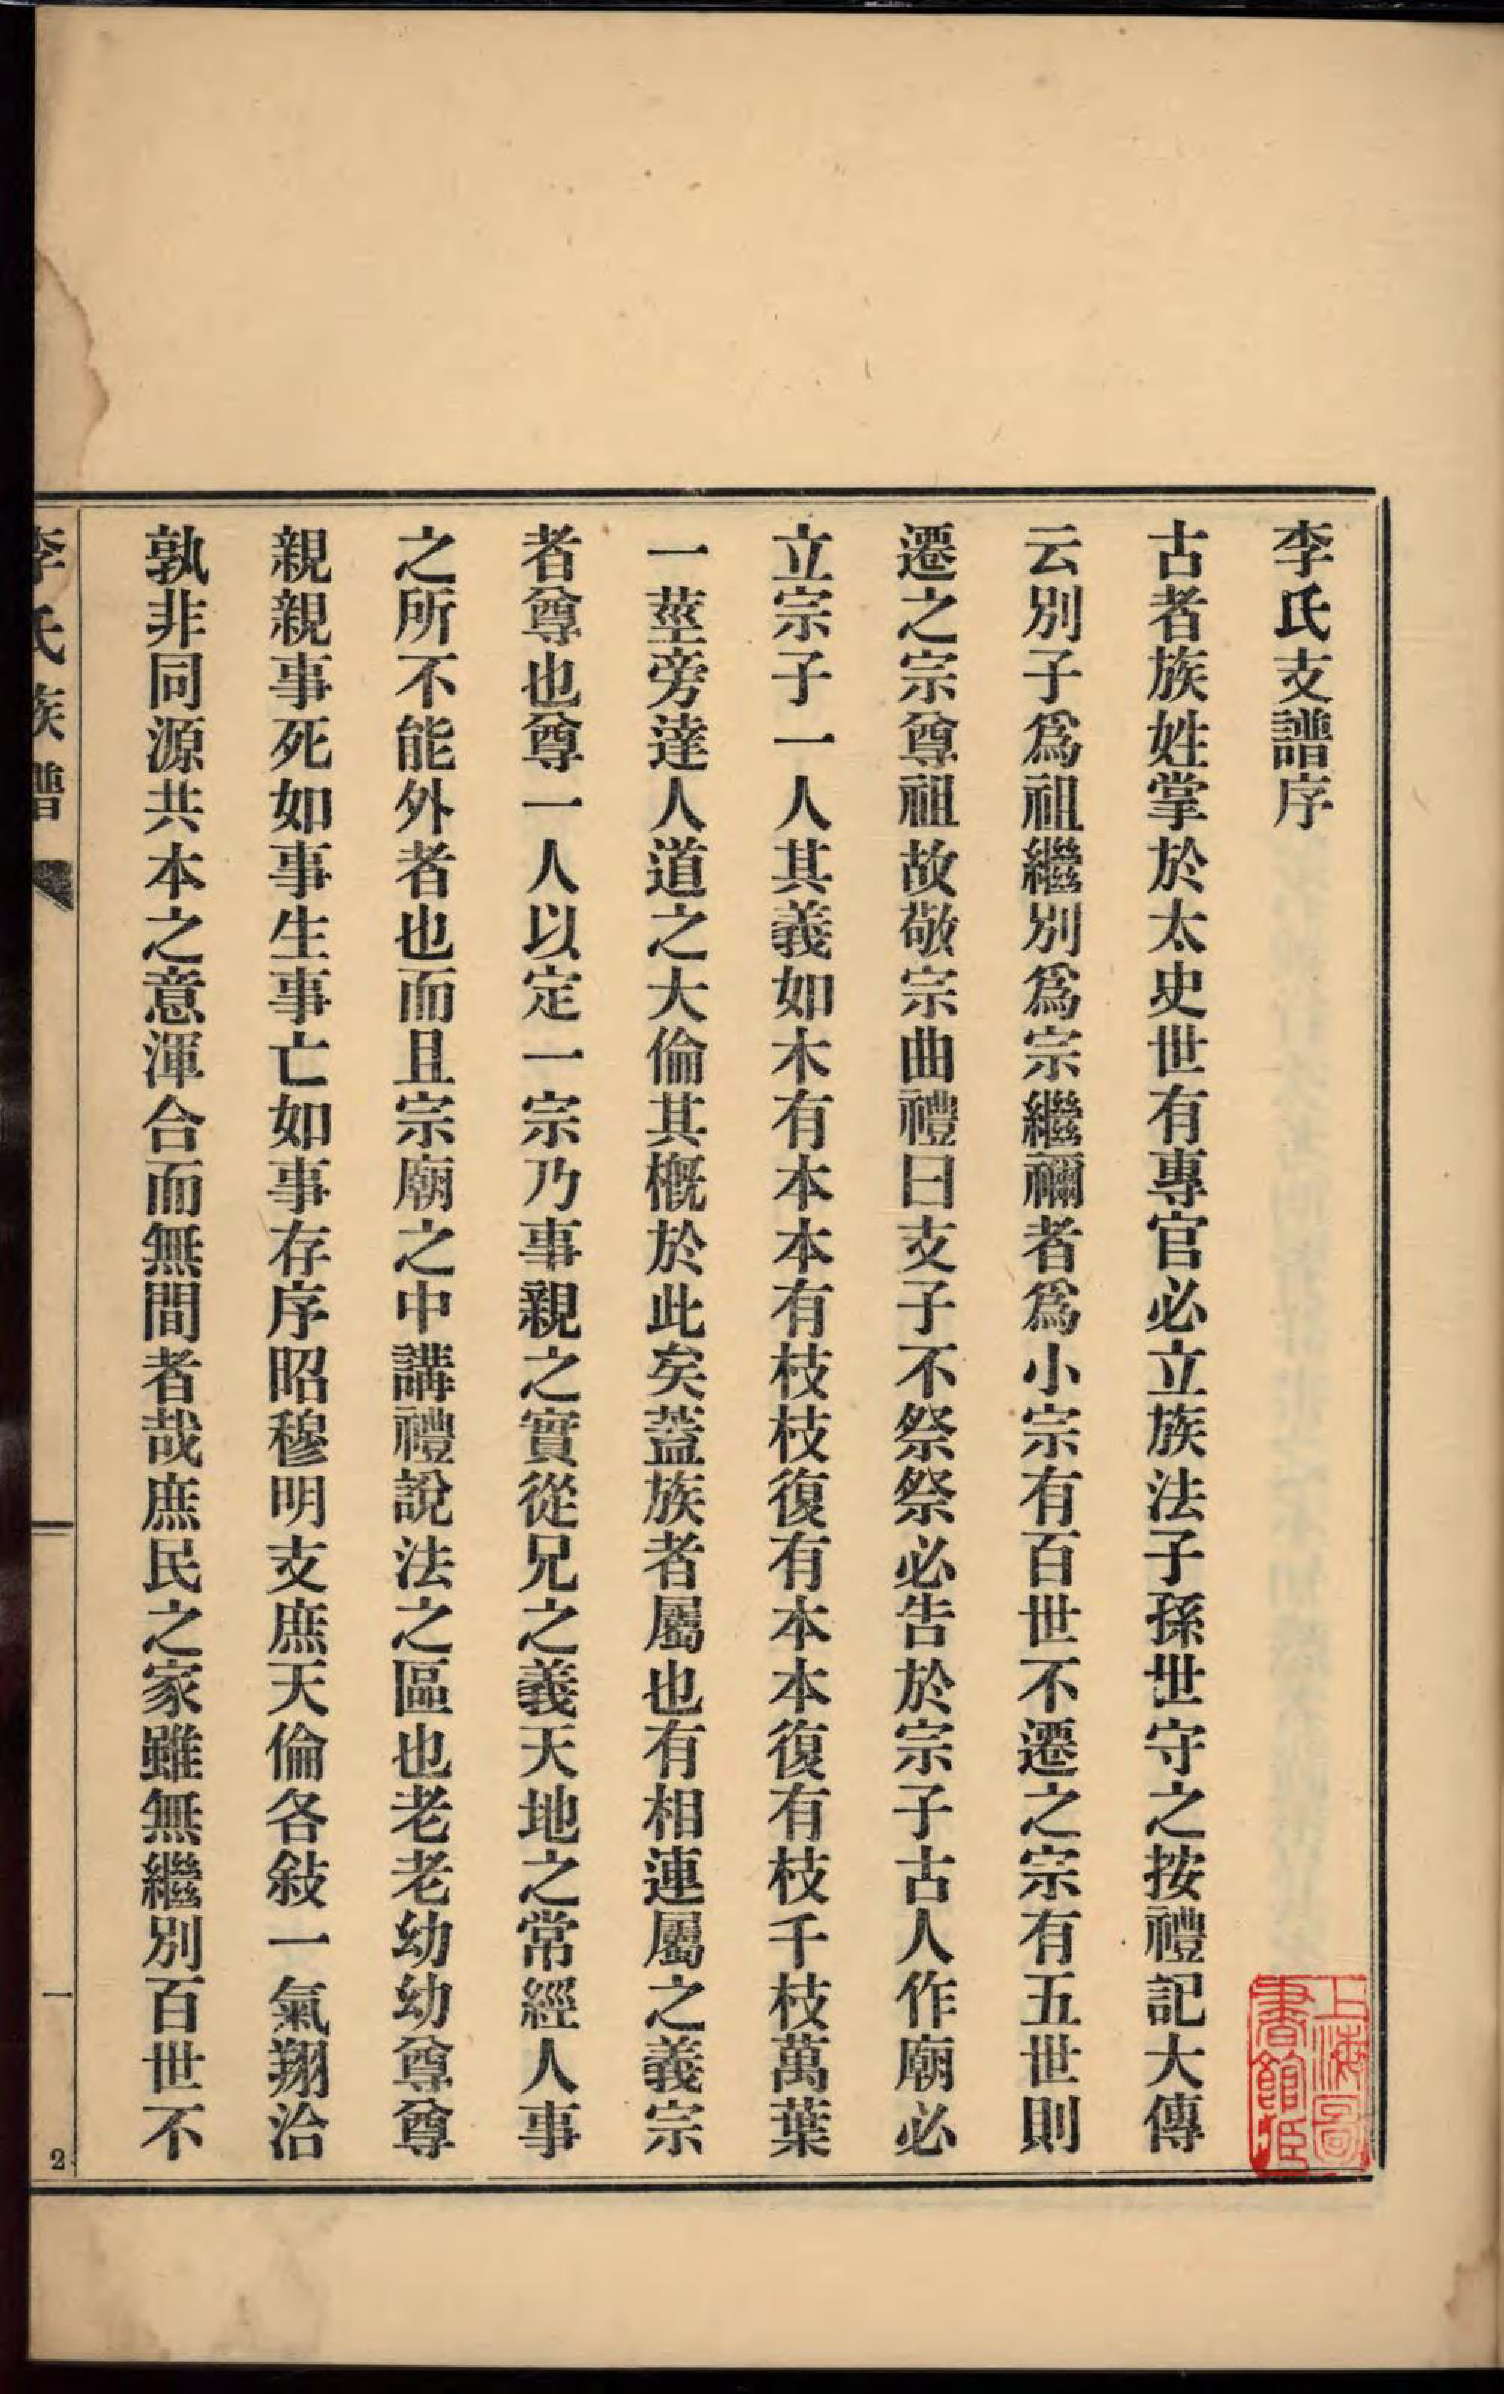 李氏支譜序
古者族姓掌於太史世有專官必立族法子孫世守之按禮記大傳
云別子爲祖繼別爲宗繼禰者爲小宗有百世不遷之宗有五世則
遷之宗尊祖故敬宗曲禮曰支子不祭祭必告於宗子古人作廟必
立宗子一人其義如木有本本有枝枝復有本本復有枝千枝萬葉
一莖旁達人道之大倫其槪於此矣蓋族者屬也有相連屬之義宗
者尊也尊一人以定一宗乃事親之實從兄之義天地之常經人事
之所不能外者也而且宗廟之中講禮說法之區也老老幼幼尊尊
親親事死如事生事亡如事存序昭穆明支庶天倫各敍一氣翔洽
孰非同源共本之意渾合而無間者哉庶民之家雖無繼別百世不
李氏族譜
一
2
上海圖
書館藏